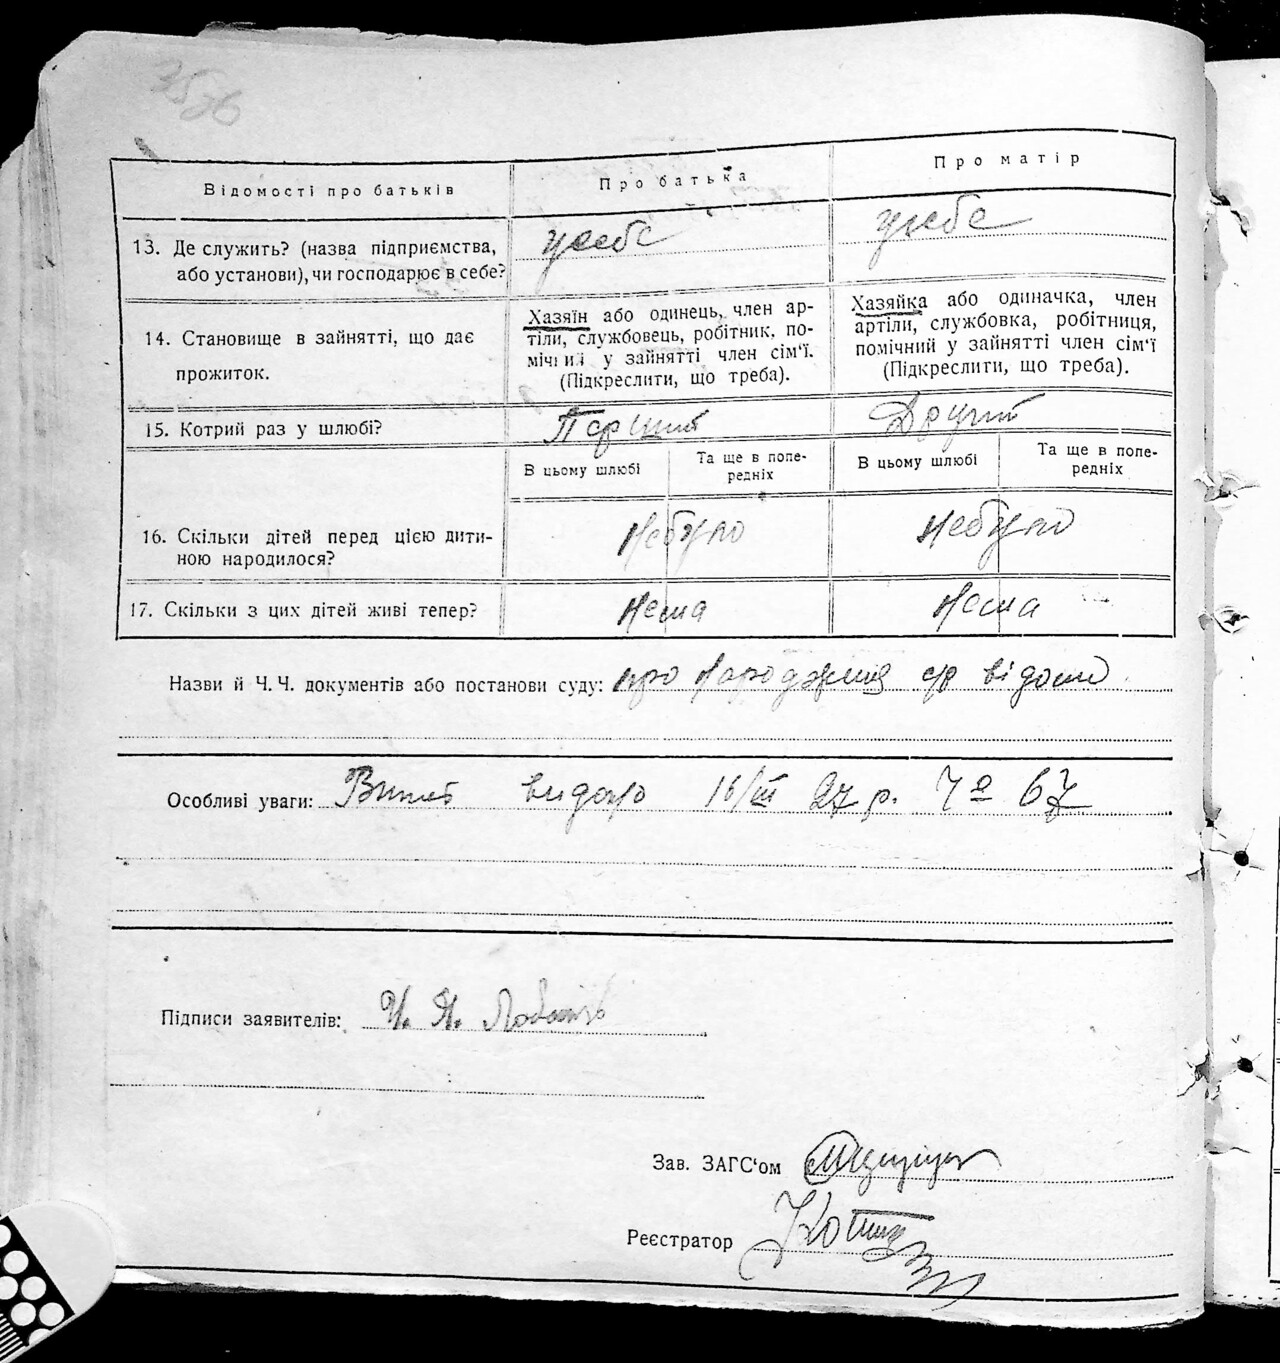 Відомості про батьків
Про батька
Про матір
13. Де служить? (назва підприємства, або установи), чи господарює в себе?
у себе
у себе
14. Становище в зайнятті, що дає прожиток.
Хазяїн або одинець, член ар-
тіли, службовець, робітник, по-
мічний у зайнятті член сім'ї.
(Підкреслити, що треба).
Хазяйка або одиначка, член
артіли, службовка, робітниця,
помічний у зайнятті член сім'ї
(Підкреслити, що треба).
15. Котрий раз у шлюбі?
Перший
Другий
В цьому шлюбі
Та ще в попе-
редніх
В цьому шлюбі
Та ще в попе-
редніх
16. Скільки дітей перед цією дити-
ною народилося?
небуло
небуло
17. Скільки з цих дітей живі тепер?
Нема
Нема
Назви й Ч. Ч. документів або постанови суду: про народження
Особливі уваги: видано 16/III 27 р. 67
Підписи заявителів:
Зав. ЗАГС'ом
Реєстратор